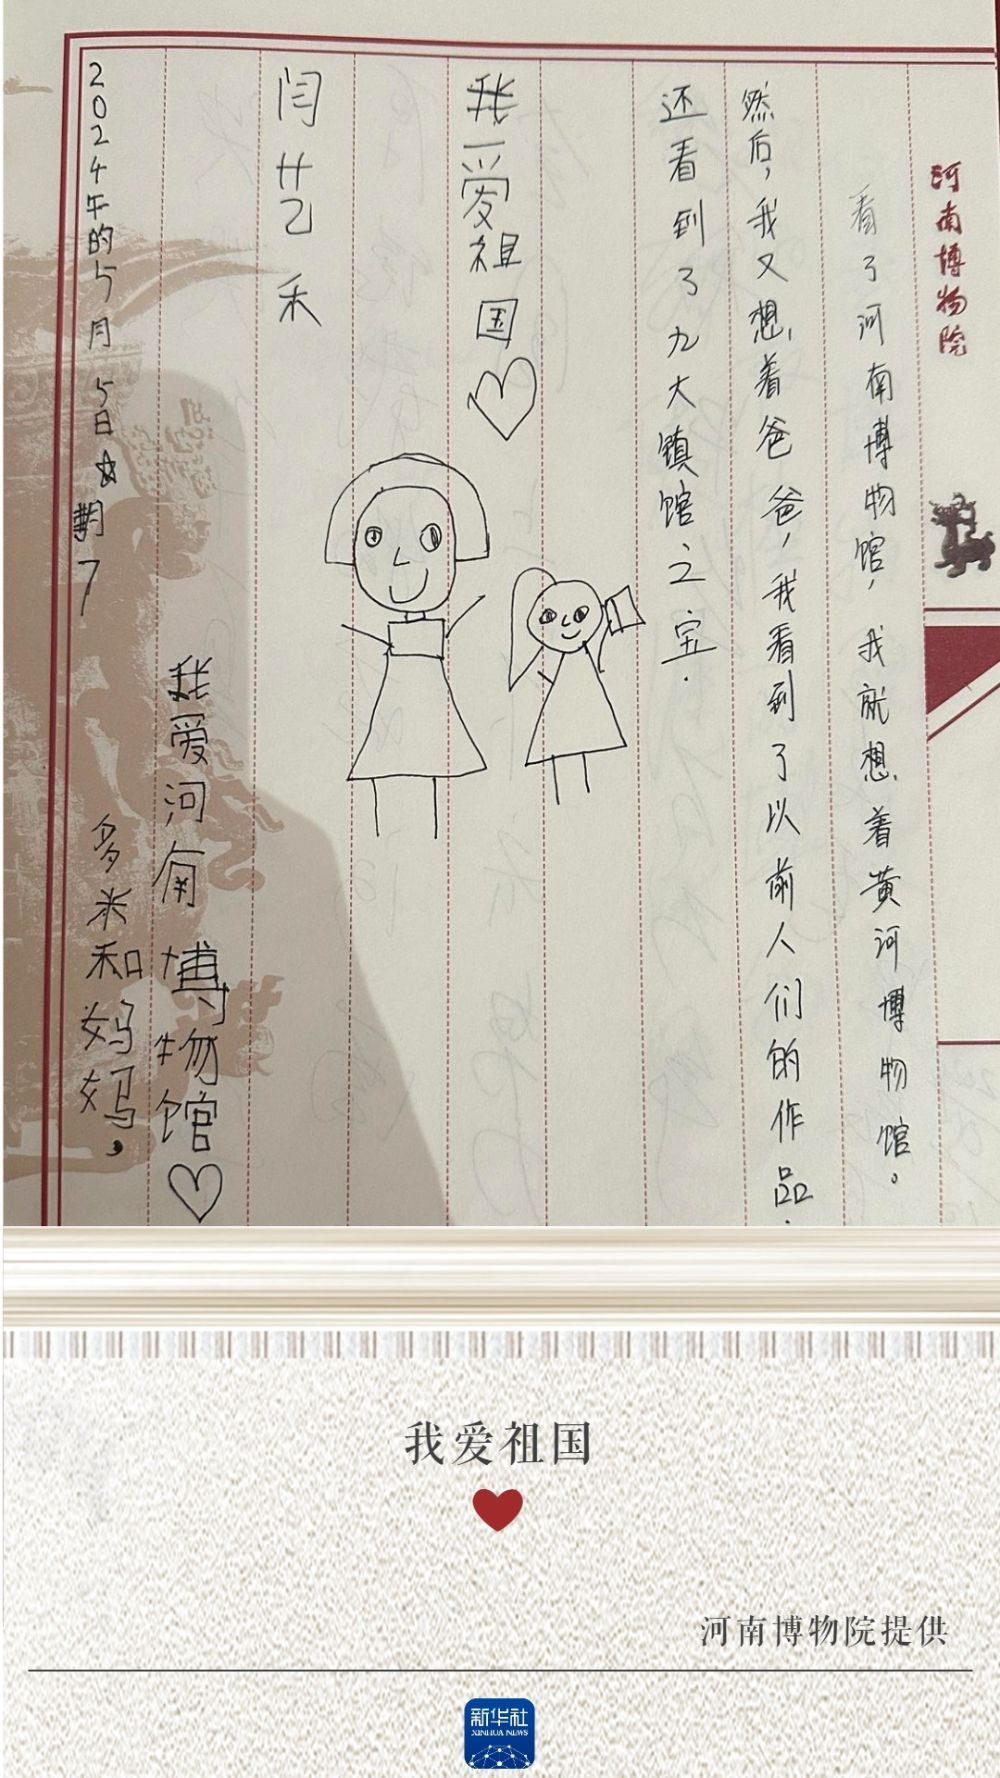 河南博物院
看了河南博物馆，我就想着黄河博物馆。
然后，我又想着爸爸，我看到了以前人们的作品.
还看到了九大镇馆之宝.
我爱祖国♡
闫艺禾
我爱河南博物馆♡
2024年的5月5日星期7
多米和妈妈，
我爱祖国
河南博物院提供
新华社
XINHUA NEWS